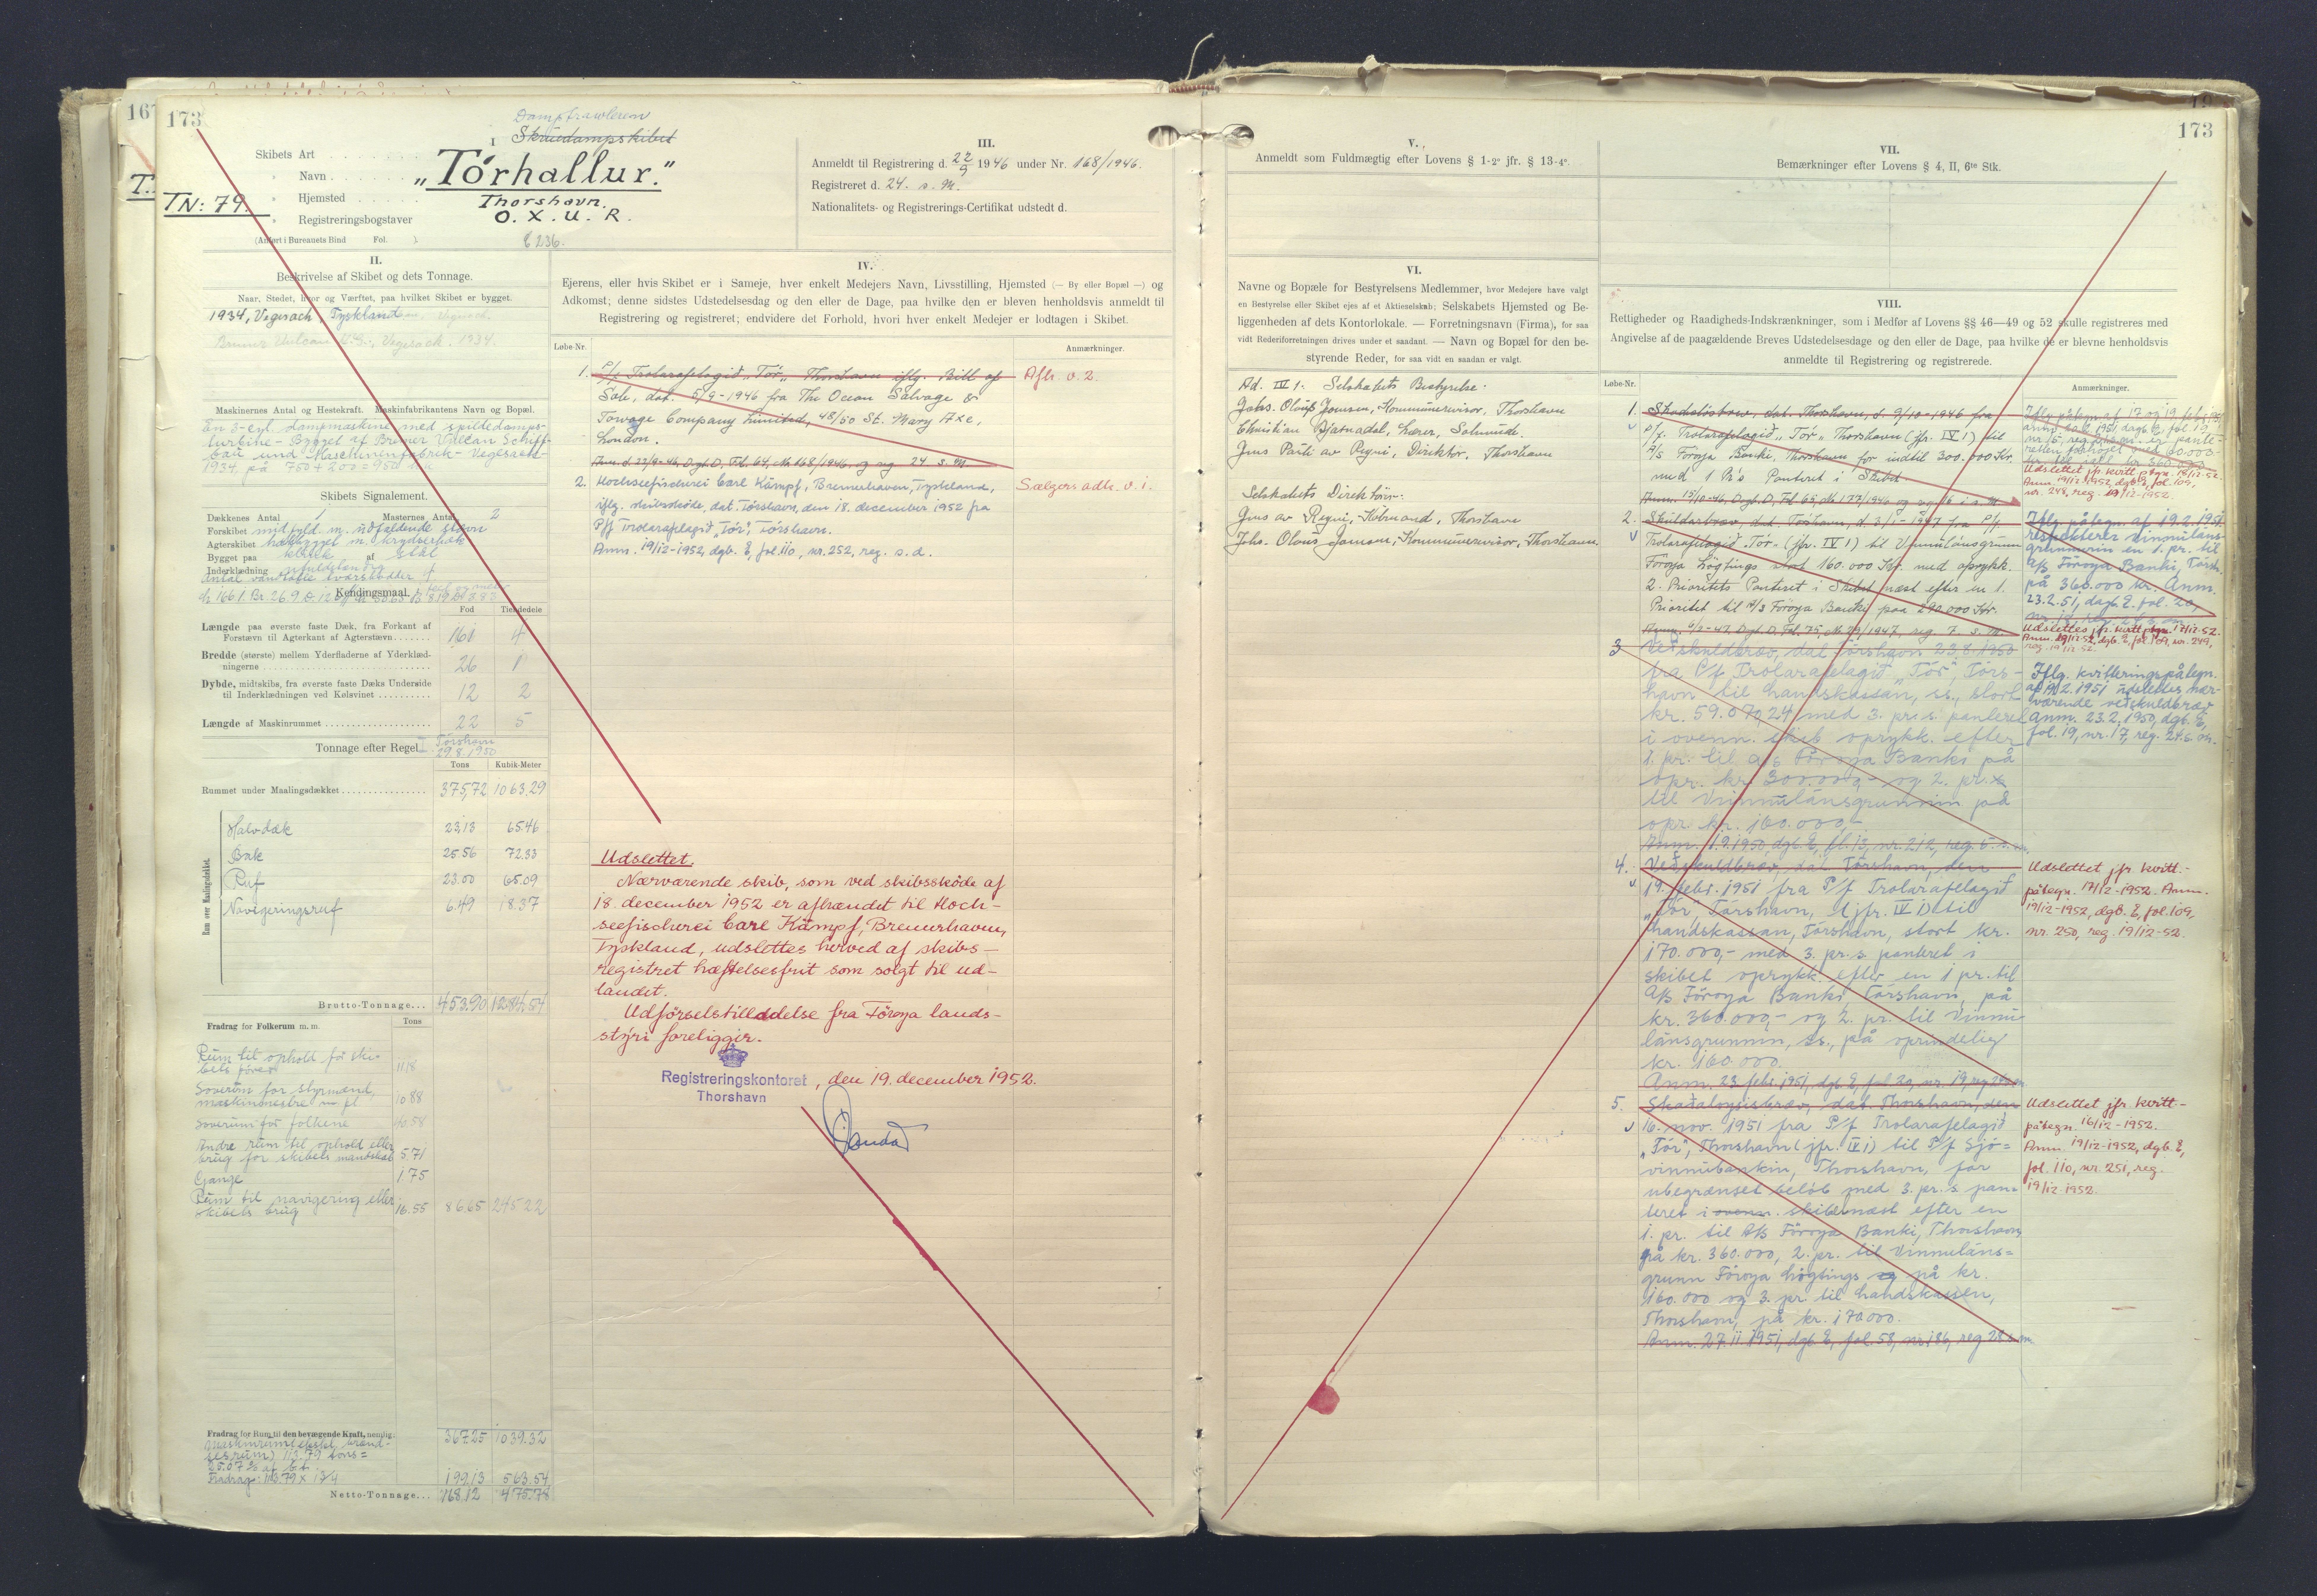 167
173
T.
TN: 79.
Damptrawleren
I
Skruedampskibet
Skibets Art
» Navn
„Tórhallur."
» Hjemsted
Thorshavn.
» Registreringsbogstaver
O. X. U. R.
(Anført i Bureauets Bind Fol. ).
E 236.
III.
Anmeldt til Registrering d. 22/9 1946 under Nr. 168/1946.
Registreret d. 24. s. M.
Nationalitets- og Registrerings-Certifikat udstedt d.
II.
Beskrivelse af Skibet og dets Tonnage.
Naar, Stedet, hvor og Værftet, paa hvilket Skibet er bygget.
1934, Vegesach, Tyskland
Bremer Vulcan, Vegesack. 1934.
Maskinernes Antal og Hestekraft. Maskinfabrikantens Navn og Bopæl.
En 3-cyl. dampmaskine med spildedamps-
turbine - Bygget af Bremer Vulcan Schiff-
bau und Maschinenfabrik - Vegesack -
1934. på 750 + 200 = 950
Skibets Signalement.
Dækkenes Antal 1 Masternes Antal 2
Forskibet midfyld m. udfaldende stævn
Agterskibet m. krydserhæk
Bygget paa klink af stål
Inderklædning
Antal vandtætte tværskodder 4
Kendingsmaal.
Fod Tiendedele
Længde paa øverste faste Dæk, fra Forkant af
Forstævn til Agterkant af Agterstævn 161 4
Bredde (største) mellem Yderfladerne af Yderklæd-
ningerne 26 1
Dybde, midtskibs, fra øverste faste Dæks Underside
til Inderklædningen ved Kølsvinet 12 2
Længde af Maskinrummet 22 5
Tonnage efter Regel I Tórshavn
29.8.1950
Tons Kubik-Meter
Rummet under Maalingsdækket 375,72 1063.29
Rum over Maalingsdækket.
Halvdæk 23,13 65.46
Bak 25.56 72.33
Ruf 23.00 65.09
Navigeringsruf 6.49 18.37
Brutto-Tonnage 453.90 1284.54
Fradrag for Folkerum m. m. Tons
Rum til ophold for ski-
bets fører 11.18
Soverum for styrmænd,
maskinmestre m. fl. 10.88
Soverum for folkene 40.58
Andre rum til ophold eller
brug for skibets mandskab 5.71
Gange 1.75
Rum til navigering eller
skibets brug 16.55 86.65 245.22
Fradrag for Rum til den bevægende Kraft, nemlig: 367.25 1039.32
113.79 tons =
25.07 % af b.t.
Fradrag: 113.79 x 1 3/4 199.13 563.54
Netto-Tonnage 168.12 475.78
IV.
Ejerens, eller hvis Skibet er i Sameje, hver enkelt Medejers Navn, Livsstilling, Hjemsted (— By eller Bopæl —) og
Adkomst; denne sidstes Udstedelsesdag og den eller de Dage, paa hvilke den er bleven henholdsvis anmeldt til
Registrering og registreret; endvidere det Forhold, hvori hver enkelt Medejer er lodtagen i Skibet.
Løbe-Nr. Anmærkninger.
1. P/f Trolarafelagið „Tór" Thorshavn iflg. Bill of Afh. v. 2.
Sale, dat. 5/9-1946 fra The Ocean Salvage &
Towage Company Limited, 48/50 St. Mary Axe,
London.
Anm. d. 22/9-46, Dgb. D, Fol. 64, No 168/1946, og reg. 24. s. M.
2. Hochseefischerei Carl Kämpf, Bremerhaven, Tyskland, Sælgers adk. v. 1.
iflg. skibsskøde, dat. Tórshavn, den 18. december 1952 fra
P/f Trolarafelagið „Tór", Tórshavn.
Anm. 19/12-1952, dgb. E, fol. 110, nr. 252, reg. s. d.
Udslettet.
Nærværende skib, som ved skibsskøde af
18. december 1952 er afhændet til Hoch-
seefischerei Carl Kämpf, Bremerhaven,
Tyskland, udslettes herved af skibs-
registret hæftelsesfrit som solgt til ud-
landet.
Udførselstilladelse fra Föroya lands-
stýri foreligger.
Registreringskontoret, den 19. december 1952.
Thorshavn
173
V.
Anmeldt som Fuldmægtig efter Lovens § 1-2° jfr. § 13-4°.
VI.
Navne og Bopæle for Bestyrelsens Medlemmer, hvor Medejere have valgt
en Bestyrelse eller Skibet ejes af et Aktieselskab; Selskabets Hjemsted og Be-
liggenheden af dets Kontorlokale. — Forretningsnavn (Firma), for saa
vidt Rederiforretningen drives under et saadant. — Navn og Bopæl for den be-
styrende Reder, for saa vidt en saadan er valgt.
Ad. IV 1. Selskabets Bestyrelse:
Johs. Olauss Joensen, Kommunerevisor, Thorshavn
Christian Bjarnadal, Lærer, Solmunde.
Jens Pauli av Reyni, Direktör, Thorshavn
Selskabets Direktörer:
Jens av Reyni, Købmand, Thorshavn
Johs. Olaus Joensen, Kommunerevisor, Thorshavn.
VII.
Bemærkninger efter Lovens § 4, II, 6te Stk.
VIII.
Rettigheder og Raadigheds-Indskrænkninger, som i Medfør af Lovens §§ 46—49 og 52 skulle registreres med
Angivelse af de paagældende Breves Udstedelsesdage og den eller de Dage, paa hvilke de er blevne henholdsvis
anmeldte til Registrering og registrerede.
Løbe-Nr. Anmærkninger.
1. Skadesløsbrev, dat. Thorshavn, d. 9/10-1946 fra
P/f. Trolarafelagið „Tór" Thorshavn (jfr. IV 1) til
A/S Föroya Banki, Thorshavn for indtil 300.000 Kr.
med 1 Pr's Panteret i Skibet.
Anm. 15/10-46, Dgb. D, Fol. 65, No 177/1946 og reg. 16 i s. M.
Iflg. påtegn. af 17 og 19 feb. 1951
Udslettet jfr. kvitt. påtegn. 18/12-52.
Anm. 19/12-1952, dgb. E, fol. 109,
nr. 248, reg. 19/12-1952.
2. Skuldarbrøv, dat. Tórshavn, d. 3/1-1947 fra P/f.
Trolarafelagið „Tór" (jfr. IV 1) til Vinnulánsgrunn
Föroya Lögtings stort 160.000 Kr. med oprykk.
2. Prioritets Panteret i Skibet næst efter en 1.
Prioritet til A/S Föroya Banki paa 290.000 Kr.
Anm. 6/2-47, Dgb. D. Fol. 75, No 23/1947, reg. 7. s. M.
Iflg. påtegn. af 19.2.1951
respekterer vinnuláns-
grunnurin en 1. pr. til
A/S Föroya Banki, Tórsh.
på 360.000 kr. Anm.
23.2.51, dagb. E. fol. 20,
Udslettes jfr. kvitt. påtegn. 17/12-52.
Anm. 19/12-52, dgb. E, fol. 109, nr. 249,
reg. 19/12-52.
3 Veðskuldbrøv, dat. Tórshavn 23.8.1950
fra P/f Trolarafelagið „Tór", Tórs-
havn til Landskassan, ss., stort
kr. 59.070,24 med 3. pr.s. panteret
i ovenn. skib oprykk. efter
1. pr. til a/s Föroya Banki på
opr. kr. 300.000,- og 2. pr.
til Vinnulánsgrunnin på
opr. kr. 160.000,-
Anm. 1.9.1950, dgb. E, fl. 13, nr. 212, reg. 5. s. m.
Iflg. kvitteringspåtegn.
af 19.2.1951 udslettes nær-
værende veðskuldbræv
Anm. 23.2.1950, dgb. E,
fol. 19, nr. 17, reg. 24. s. m.
4. Veðskuldbrøv, dat. Tórshavn, den
19. febr. 1951 fra P/f Trolarafelagið
„Tór", Tórshavn, (jfr. IV 1) til
Landskassan, Tórshavn, stort kr.
170.000,- med 3. pr.s panteret i
skibet oprykk. efter en 1 pr. til
A/S Föroya Banki, Tórshavn, på
kr. 360.000,- og 2. pr. til Vinnu-
lánsgrunnin, ss., på oprindelig
kr. 160.000.
Anm. 23. febr. 1951, dgb. E, fol. 20, nr. 19, reg. 24. s. m.
Udslettet jfr. kvitt.-
påtegn. 17/12-1952. Anm.
19/12-1952, dgb. E, fol. 109,
nr. 250, reg. 19/12-52.
5. Skaðaloysisbræv, dat. Thorshavn, den
16. nov. 1951 fra P/f Trolarafelagið
„Tór", Thorshavn (jfr. IV 1) til P/f Sjó=
vinnubankin, Thorshavn, for
ubegrænset beløb med 3. pr.s pan-
teret i ovenn. skib næst efter en
1. pr. til A/S Föroya Banki, Thorshavn,
på kr. 360.000, 2. pr. til Vinnuláns=
grunn Föroya Løgtings på kr.
160.000 og 3. pr. til Landskassen,
Thorshavn, på kr. 170.000.
Anm. 27.11.1951, dgb. E, fol. 58, nr. 186, reg. 28 s. m.
Udslettet jfr. kvitt-
påtegn. 16/12-1952.
Anm. 19/12-1952, dgb. E,
fol. 110, nr. 251, reg.
19/12-1952.